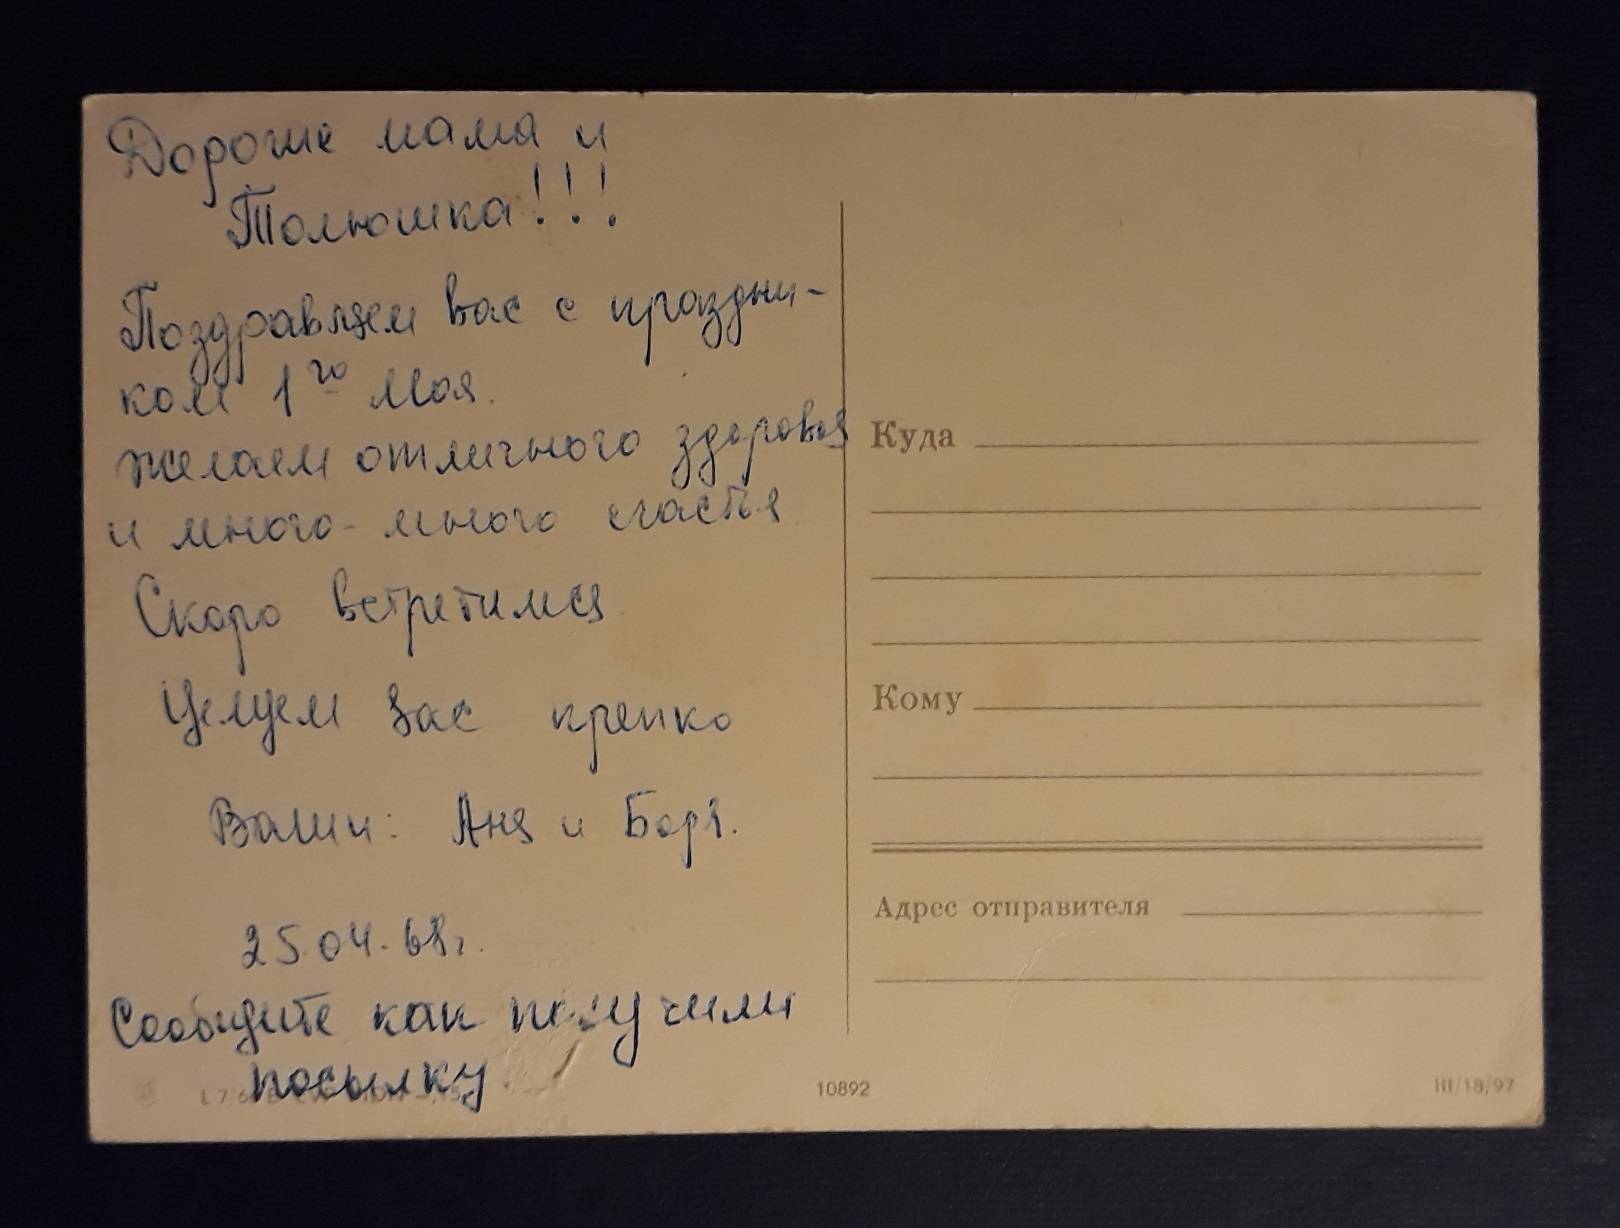 Дорогие мама и
Толюшка!!!
Поздравляем вас с праздни-
ком 1го Мая.
желаем отличного здоровья
и много-много счастья
Скоро встретимся
Целуем вас крепко
Ваши: Аня и Боря.
25.04.68г.
Сообщите как получили
посылку
Куда
Кому
Адрес отправителя
10892
III/18/97